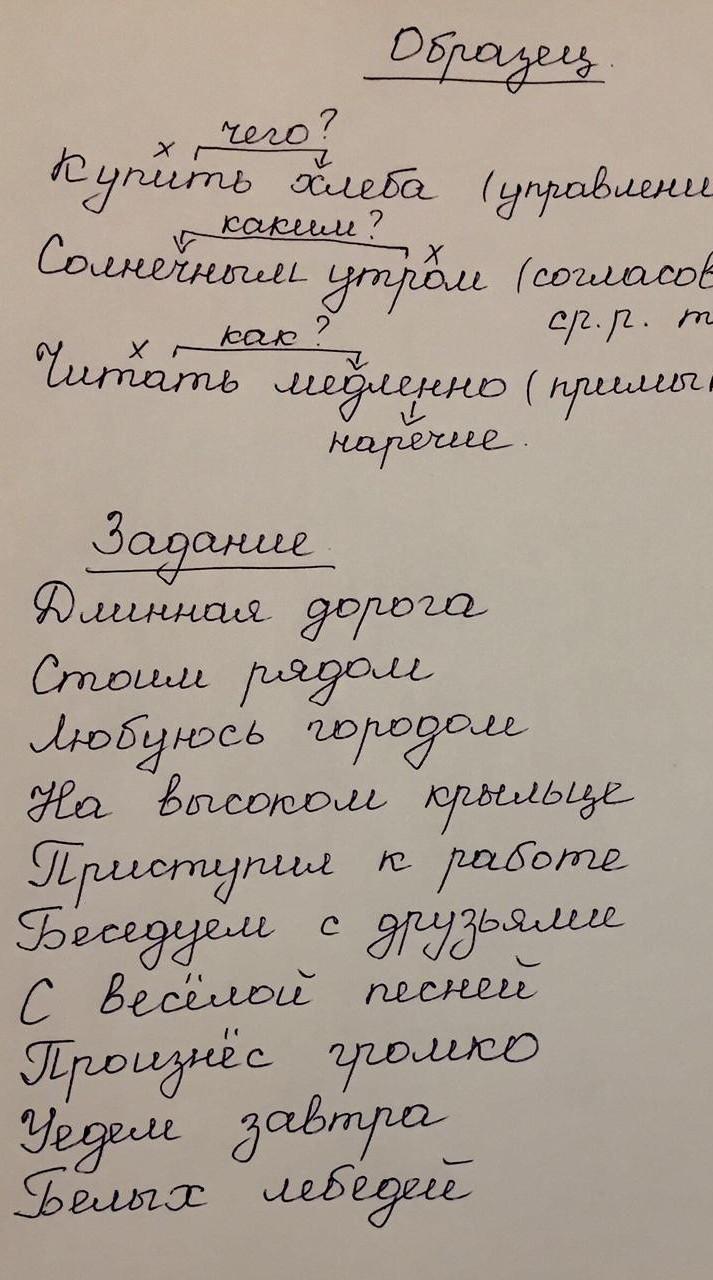 Образец.
чего?
х
Купить хлеба (управлени
каким?
х
Солнечным утром (согласов
ср.р. т
х как?
Читать медленно (примык
наречие.
Задание.
Длинная дорога
Стоим рядом
Любуюсь городом
На высоком крыльце
Приступил к работе
Беседуем с друзьями
С весёлой песней
Произнёс громко
Уедем завтра
Белых лебедей